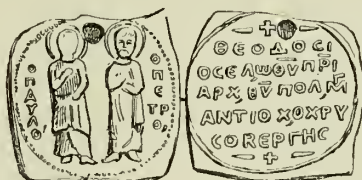 ΟΠΑΥΛΟ
ΟΠΕΤΡΟ
ΘΕΟΔΟCΙ
ΟCΕΛωΘΥΠΡΙ
ΑΡΧΘΥΠΟΛΜ
ΑΝΤΙΟΧΟΧΡΥ
CΟΚΕΡΓΗC